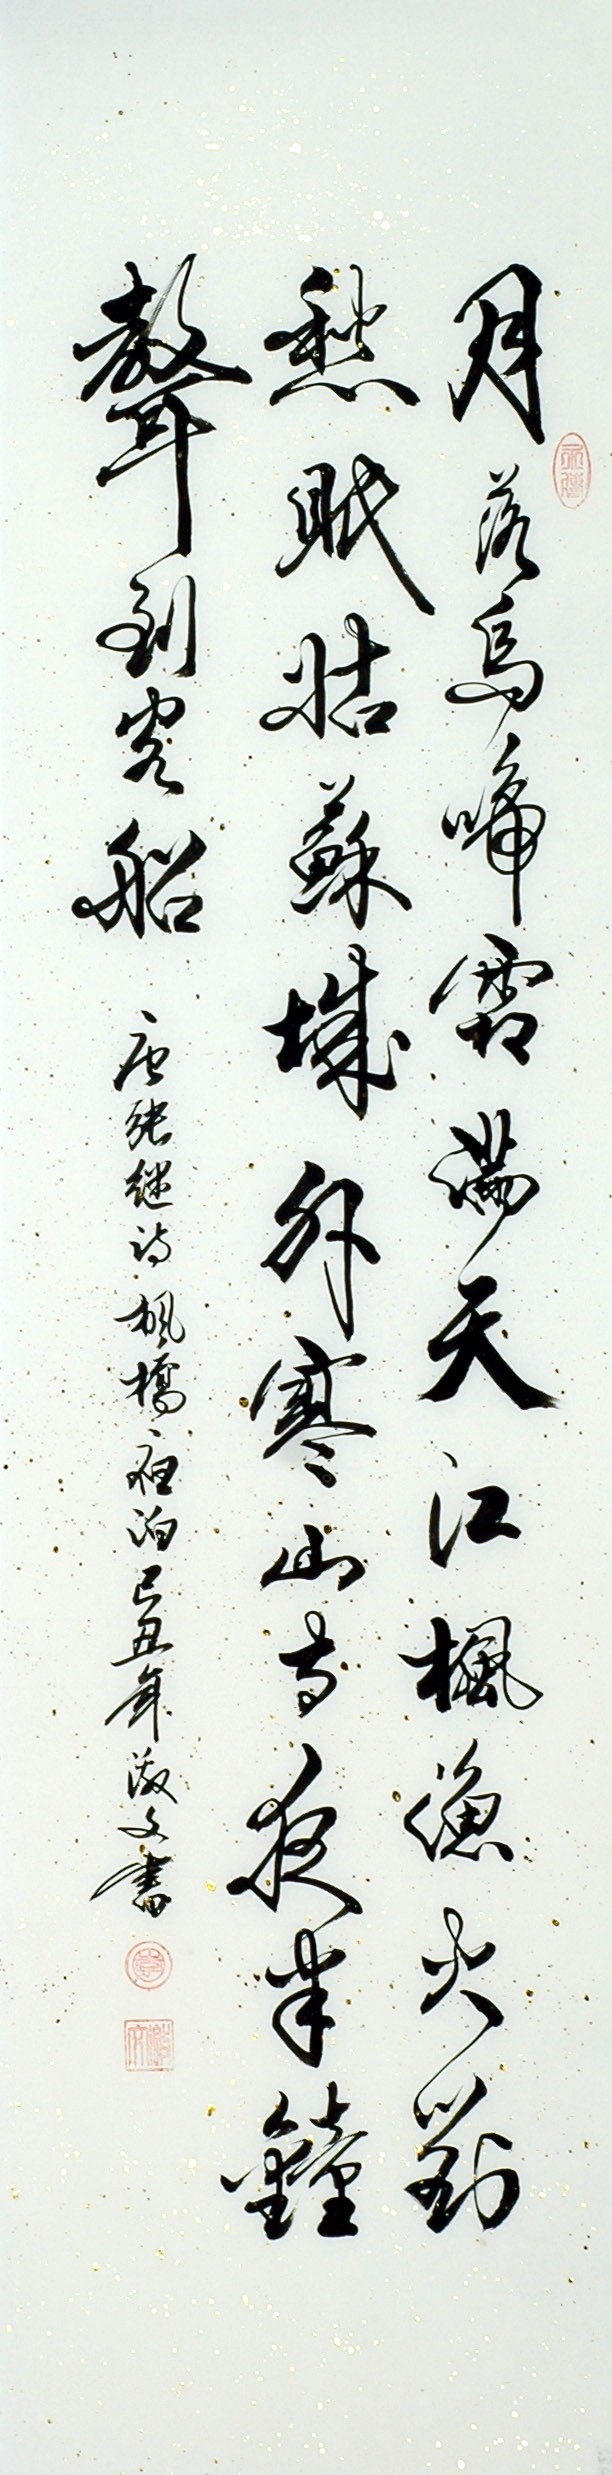 月落烏啼霜滿天江楓漁火對
愁眠姑蘇城外寒山寺夜半鐘
聲到客船
唐張继诗楓橋夜泊己丑年激文書